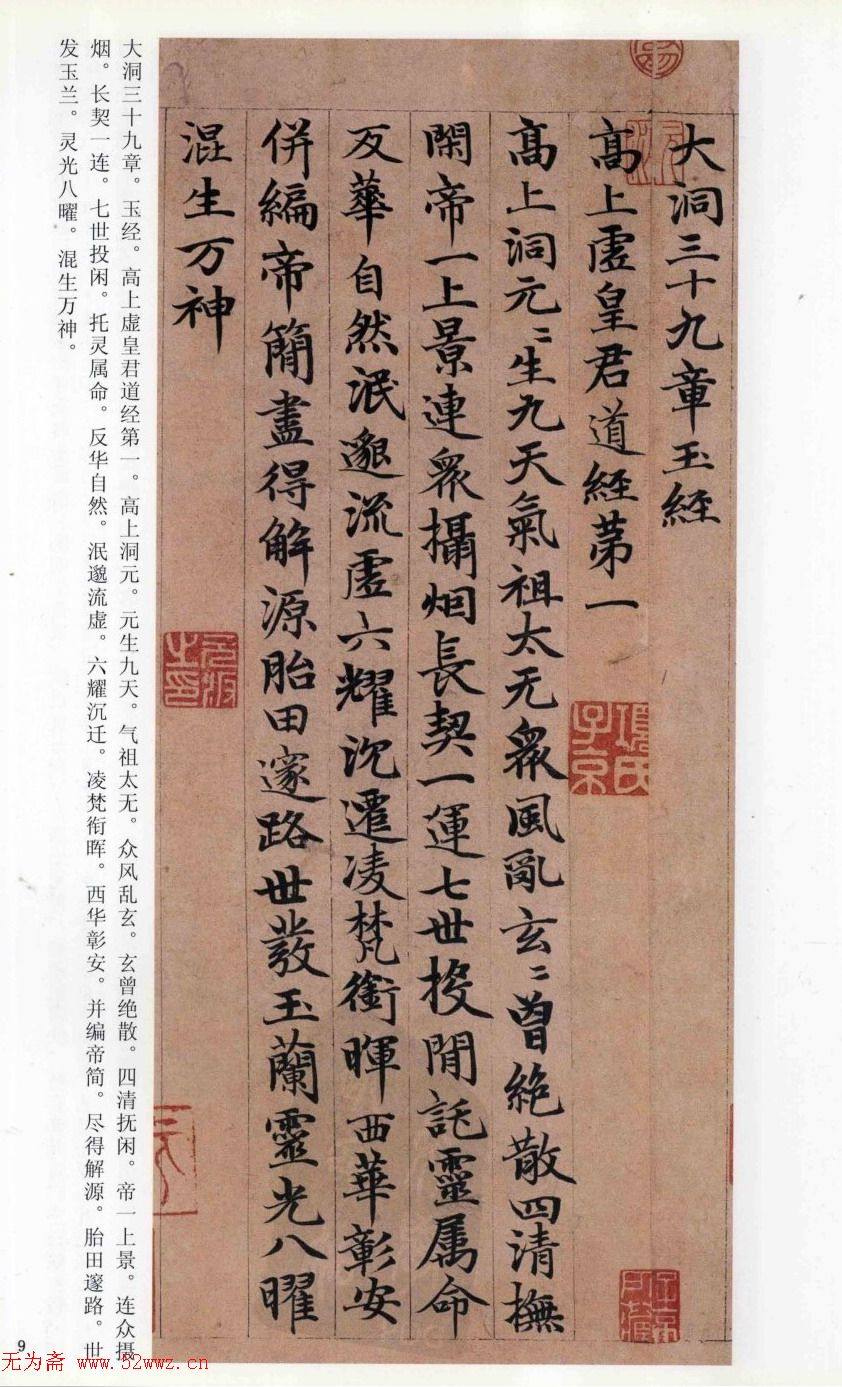 大洞三十九章玉經
高上虛皇君道經第一
高上洞元〻生九天氣祖太无眾風亂玄〻曾絶散四清撫
閑帝一上景連眾攝烟長契一運七世投閒託靈属命
反華自然泯邈流虛六耀沉遷凌梵銜暉西華彰安
併編帝簡盡得解源胎田邃路世發玉蘭靈光八曜
混生万神
項氏子京
大洞三十九章。玉经。高上虚皇君道经第一。高上洞元。元生九天。气祖太无。众风乱玄。玄曾绝散。四清抚闲。帝一上景。连众摄
烟。长契一连。七世投闲。托灵属命。反华自然。泯邈流虚。六耀沉迁。凌梵衔晖。西华彰安。并编帝简。尽得解源。胎田邃路。世
发玉兰。灵光八曜。混生万神。
9
无为斋 www.52wwz.cn